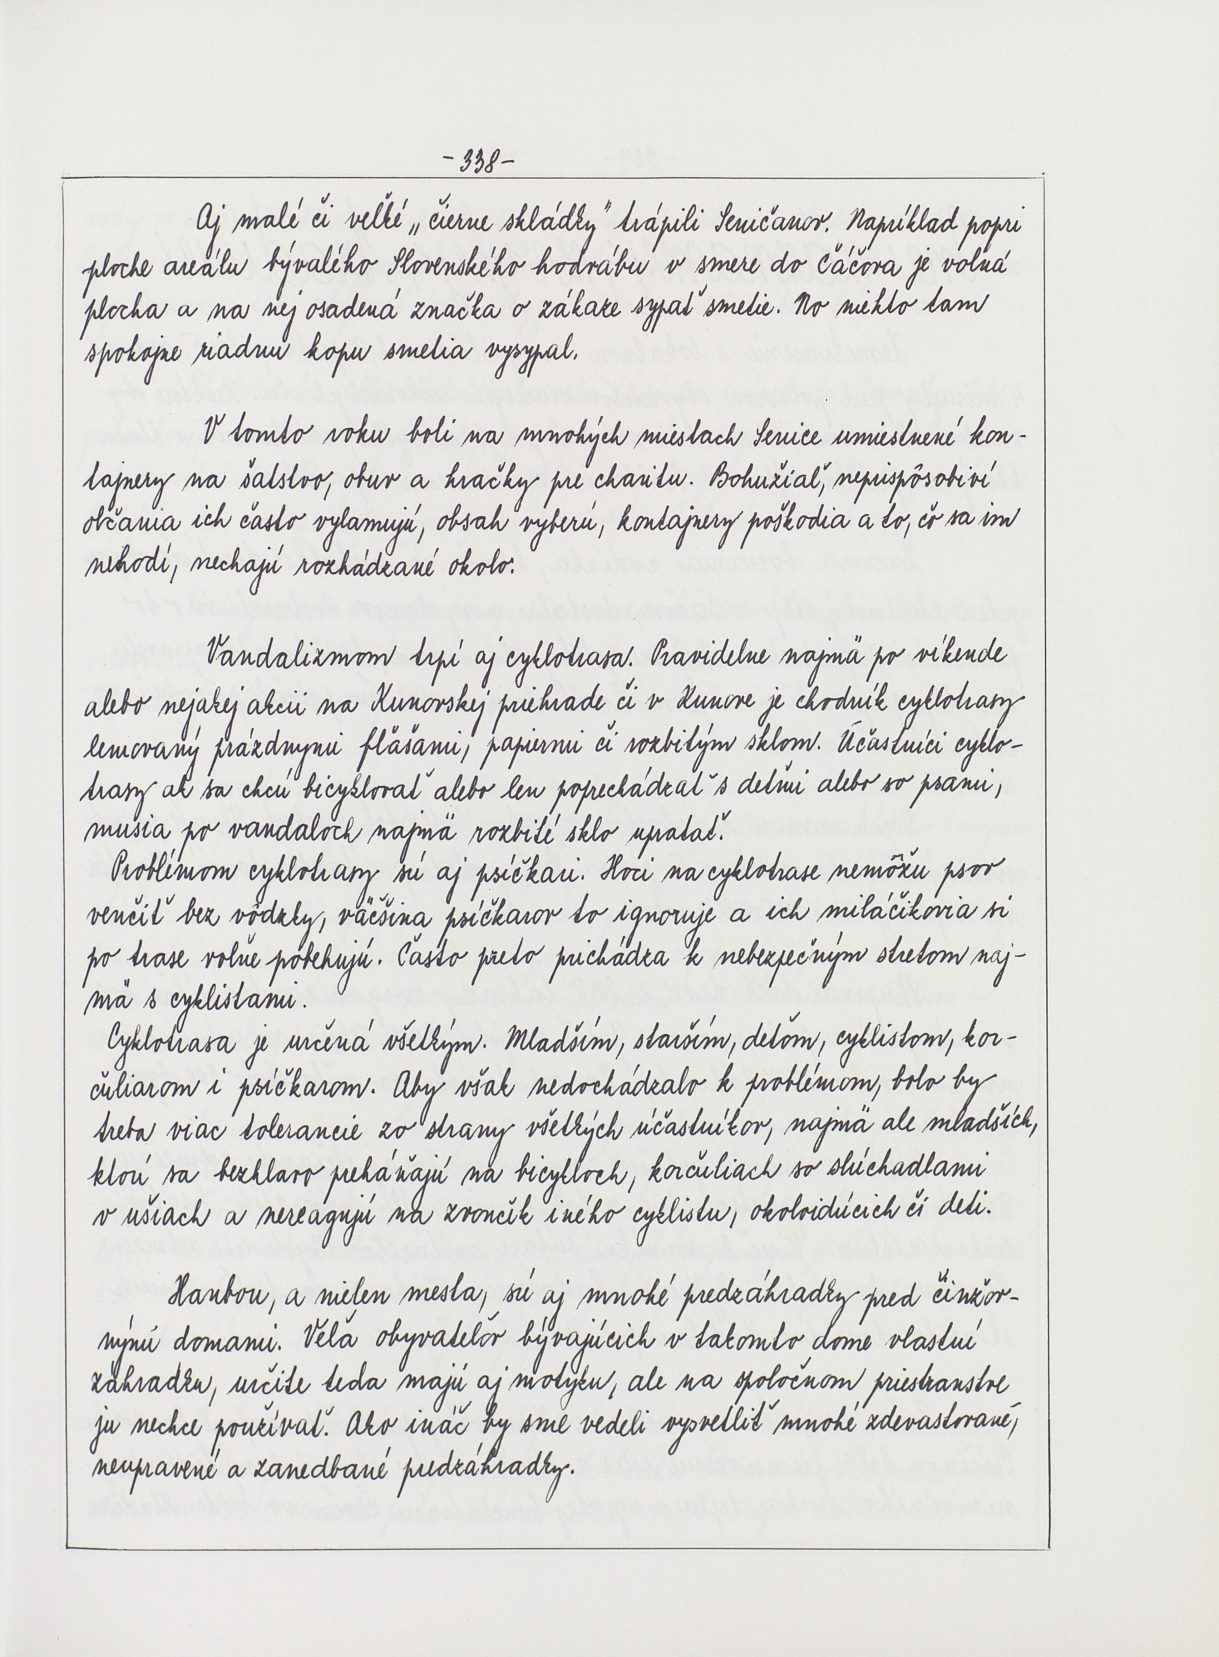 -338-
Aj malé či veľké „čierne skládky" trápili Seničanov. Napríklad popri
ploche areálu bývalého Slovenského hodvábu v smere do Čáčova je voľná
plocha a na nej osadená značka o zákaze sypať smetie. No niekto tam
spokojne riadnu kopu smetia vysypal.
V tomto roku boli na mnohých miestach Senice umiestnené kon-
tajnery na šatstvo, obuv a hračky pre charitu. Bohužiaľ, neprispôsobiví
občania ich často vylamujú, obsah vyberú, kontajnery poškodia a to, čo sa im
nehodí, nechajú rozhádzané okolo.
Vandalizmom trpí aj cyklotrasa. Pravidelne najmä po víkende
alebo nejakej akcii na Kunovskej priehrade či v Kunove je chodník cyklotrasy
lemovaný prázdnymi fľašami, papiermi či rozbitým sklom. Účastníci cyklo-
trasy ak sa chcú bicyklovať alebo len poprechádzať s deťmi alebo so psami,
musia po vandaloch najmä rozbité sklo upratať.
Problémom cyklotrasy sú aj psíčkari. Hoci na cyklotrase nemôžu psov
venčiť bez vôdzky, väčšina psíčkarov to ignoruje a ich miláčikovia si
po trase voľne pobehujú. Často preto prichádza k nebezpečným stretom naj-
mä s cyklistami.
Cyklotrasa je určená všetkým. Mladším, starším, deťom, cyklistom, kor-
čuliarom i psíčkarom. Aby však nedochádzalo k problémom, bolo by
treba viac tolerancie zo strany všetkých účastníkov, najmä ale mladších,
ktorí sa bezhlavo preháňajú na bicykloch, korčuliach so slúchadlami
v ušiach a nereagujú na zvonček iného cyklistu, okoloidúcich či deti.
Hanbou, a nielen mesta, sú aj mnohé predzáhradky pred činžov-
nými domami. Veľa obyvateľov bývajúcich v takomto dome vlastní
záhradku, určite teda majú aj motyku, ale na spoločnom priestranstve
ju nechce používať. Ako ináč by sme vedeli vysvetliť mnohé zdevastované,
neupravené a zanedbané predzáhradky.